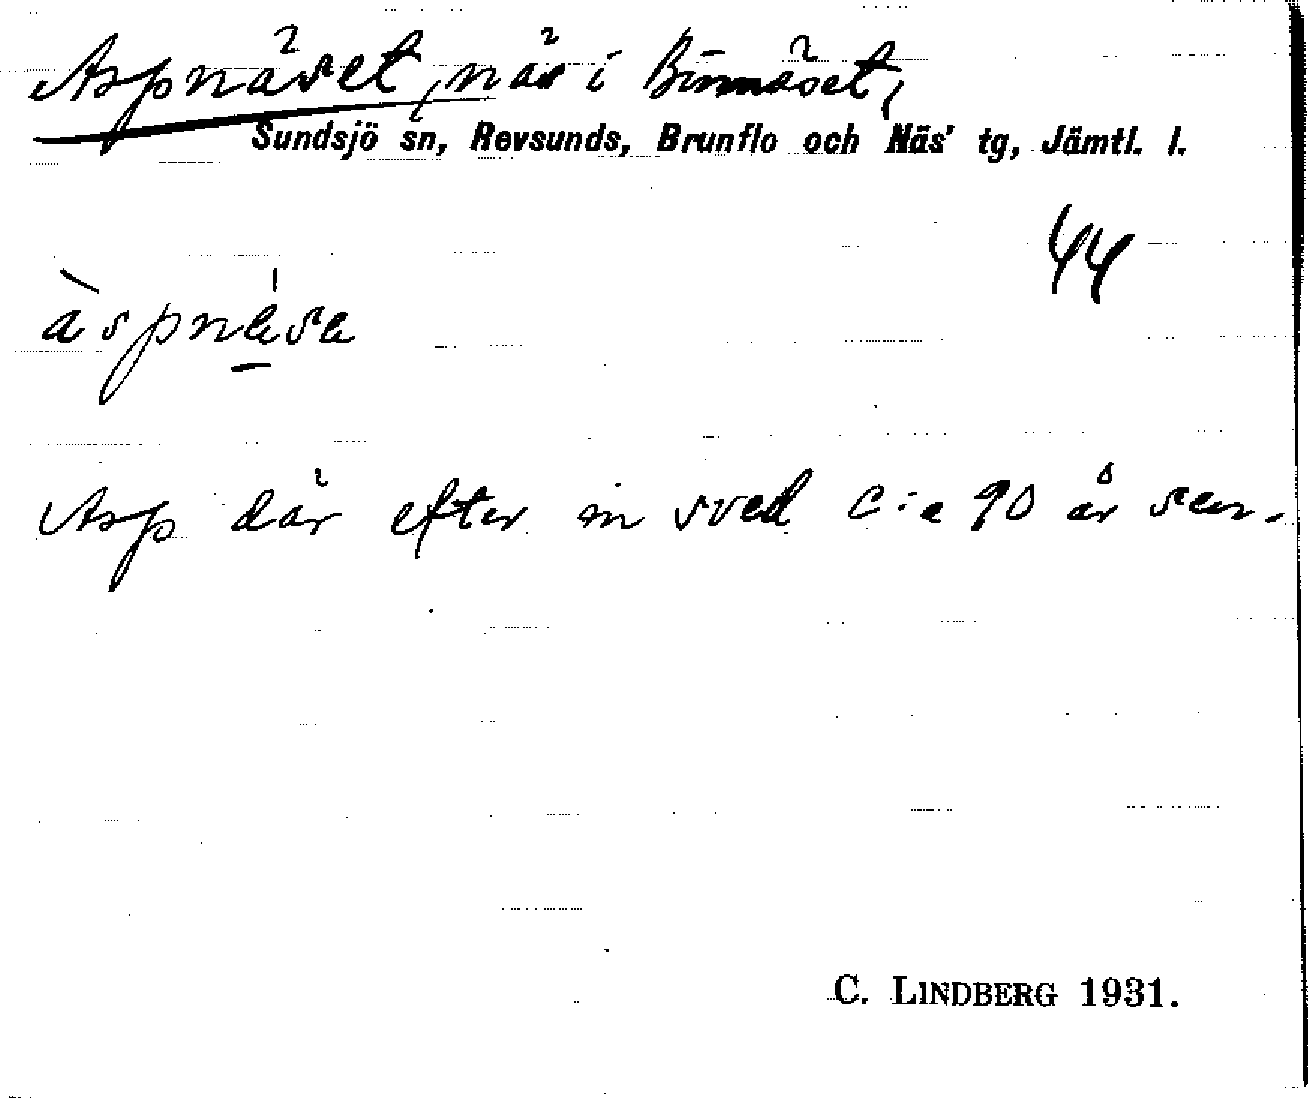 Aspnäset, näs i Binnäset,
Sundsjö sn, Revsunds, Brunflo och Näs' tg, Jämtl. l.
44
àspnésa
Asp där efter en sved c:a 90 år sen.
C. LINDBERG 1931.